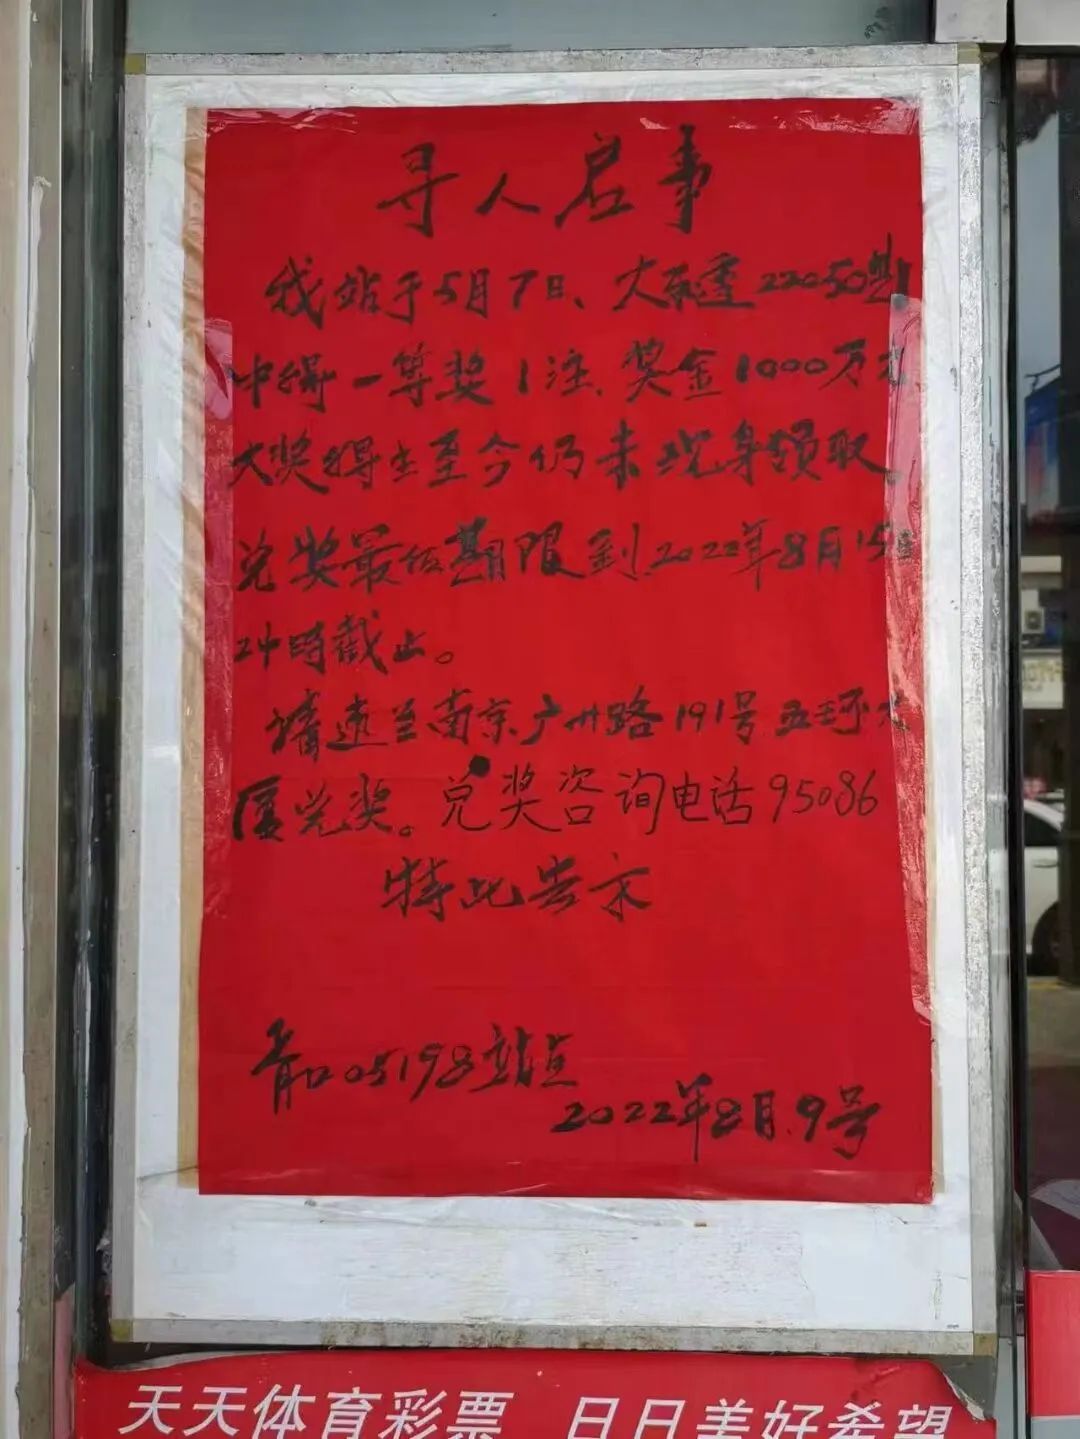 寻人启事
我站于5月7日、大乐透22050期
中得一等奖1注、奖金1000万元
大奖得主至今仍未现身领取。
兑奖最后期限到2022年8月15日
24时截止。
请速至南京广州路191号五环大
厦兑奖。兑奖咨询电话95086
特此告示
青口05198站点
2022年8月9号
天天体育彩票 日日美好希望